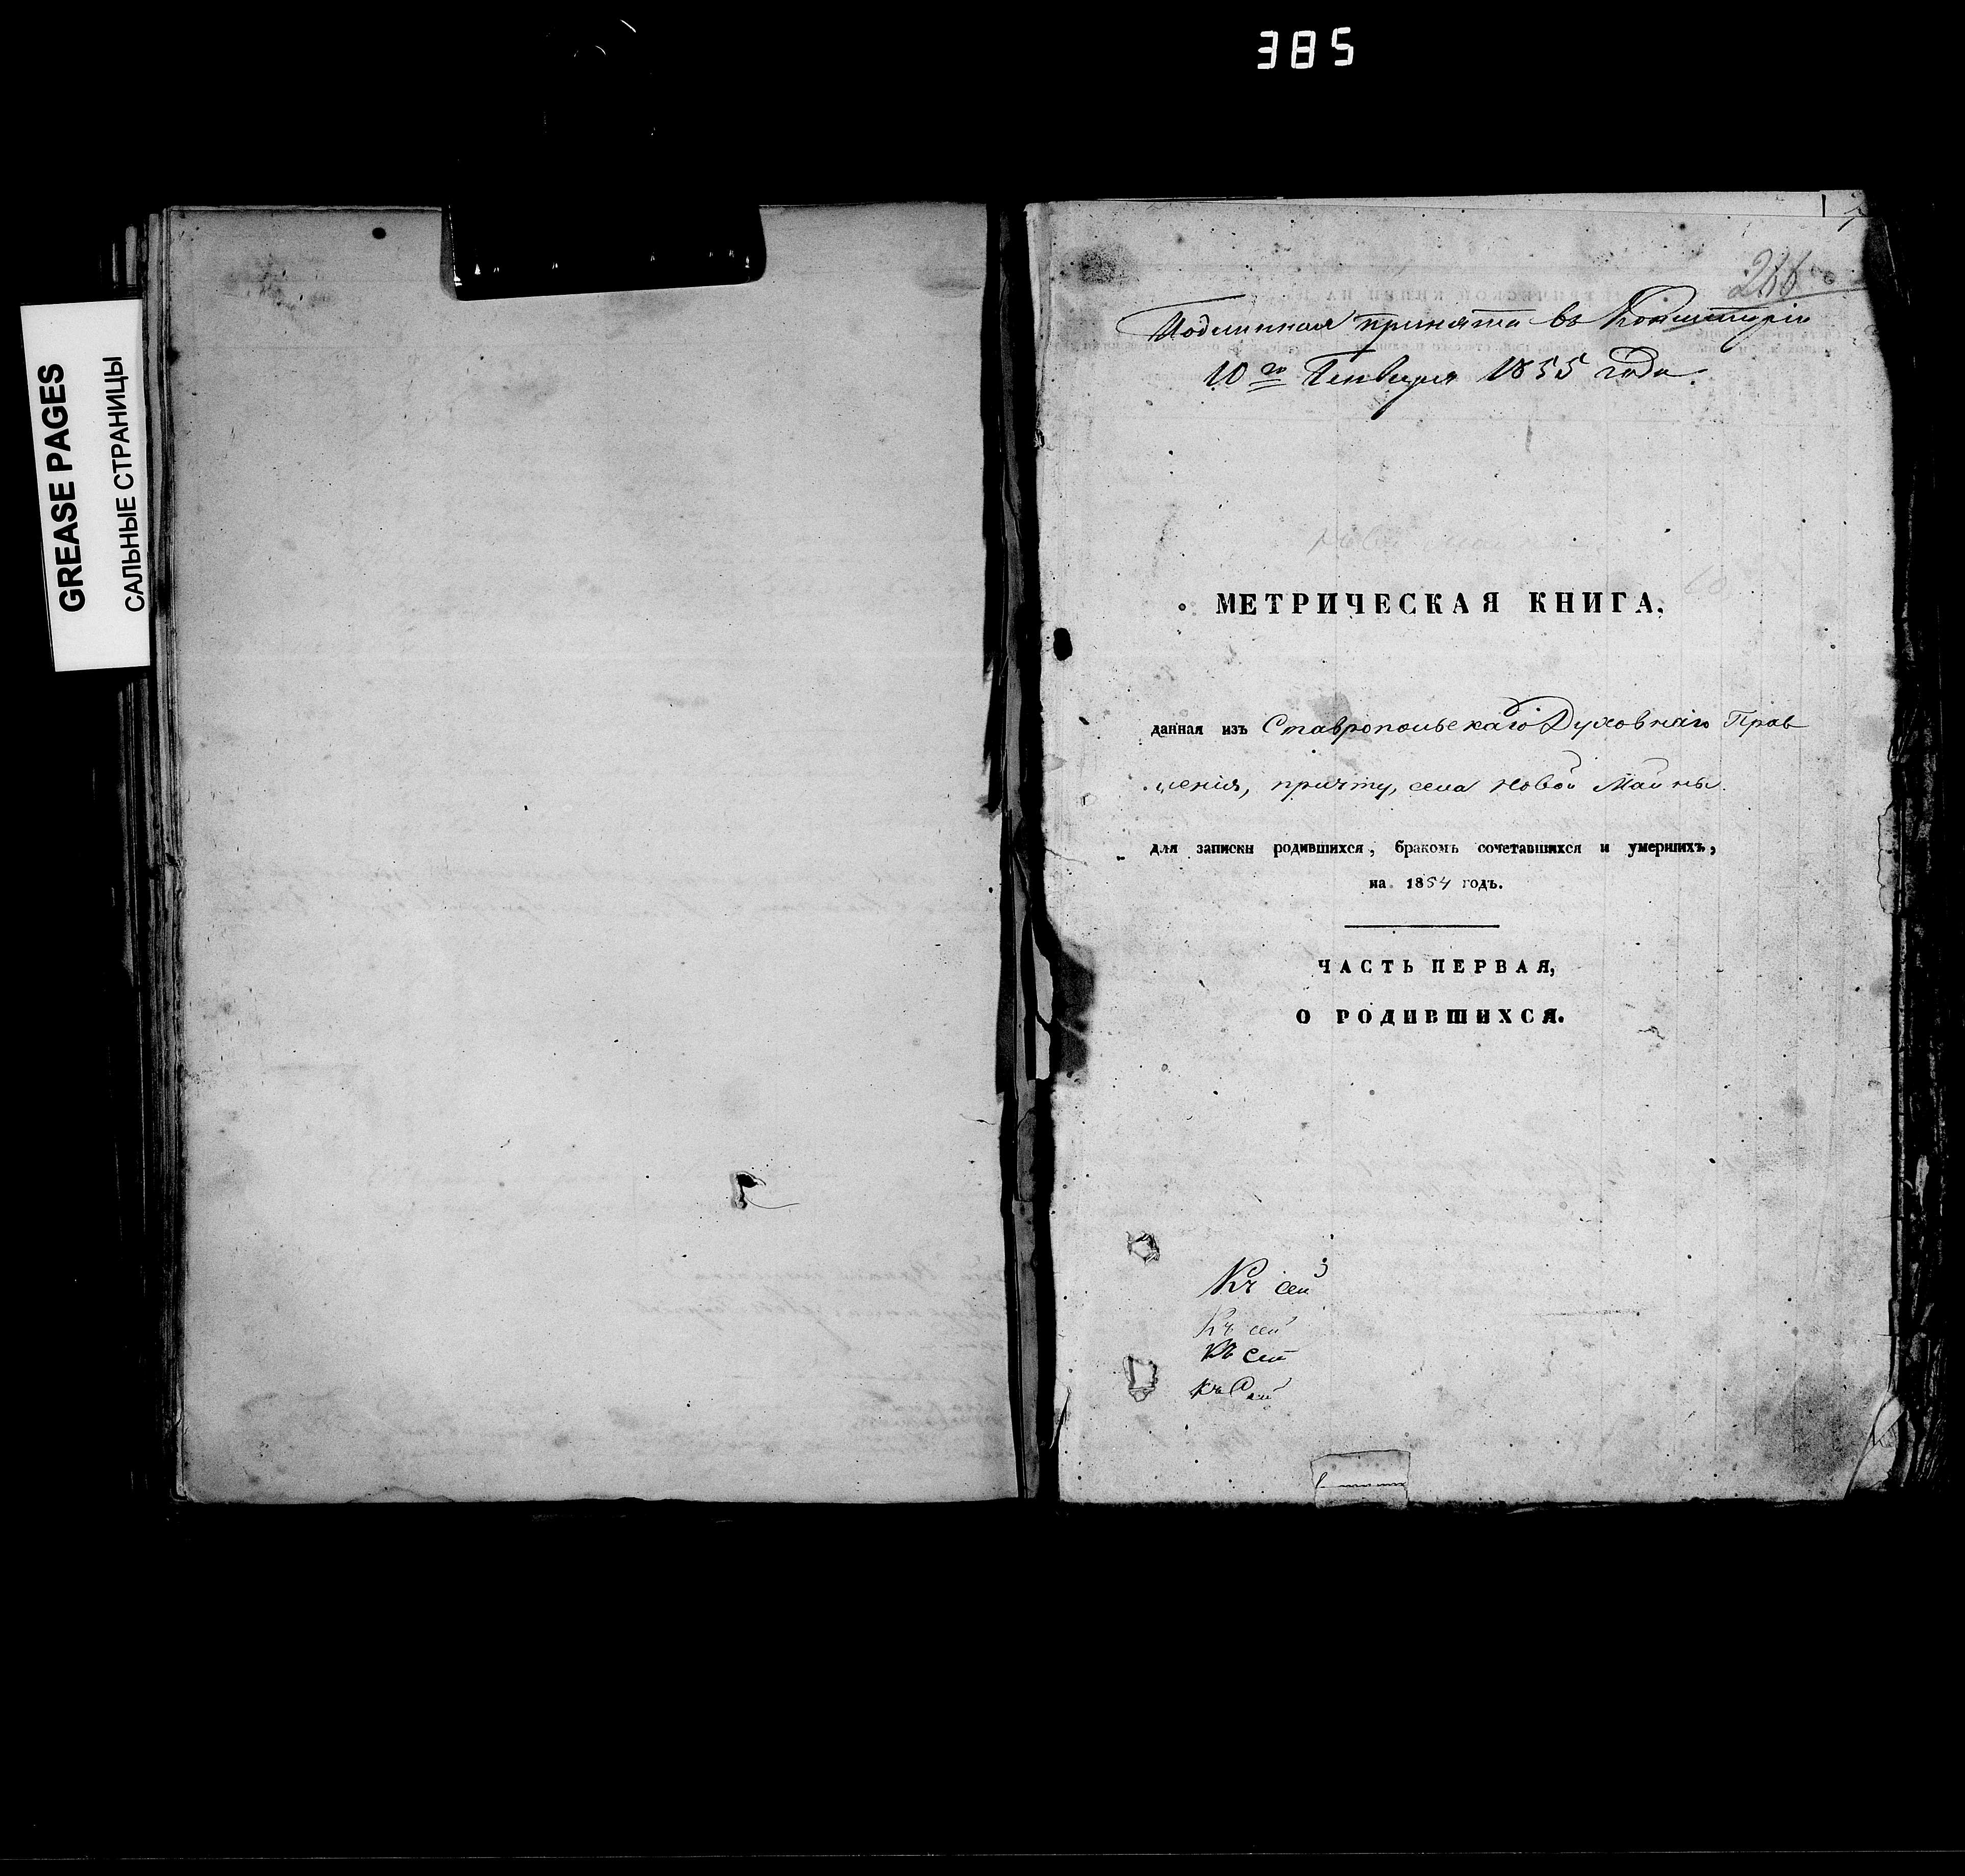 385
GREASE PAGES
САЛЬНЫЕ СТРАНИЦЫ
Подлинная принята въ Консисторіи
10го Генваря 1855 года.
МЕТРИЧЕСКАЯ КНИГА,
данная изъ Ставропольскаго Духовнаго Прав
ленія, причту, села Новой Майны.
для записки родившихся, бракомъ сочетавшихся и умершихъ,
на 1854 годъ.
ЧАСТЬ ПЕРВАЯ,
О РОДИВШИХСЯ.
Къ сей
Къ сей
Къ сей
Къ Сей